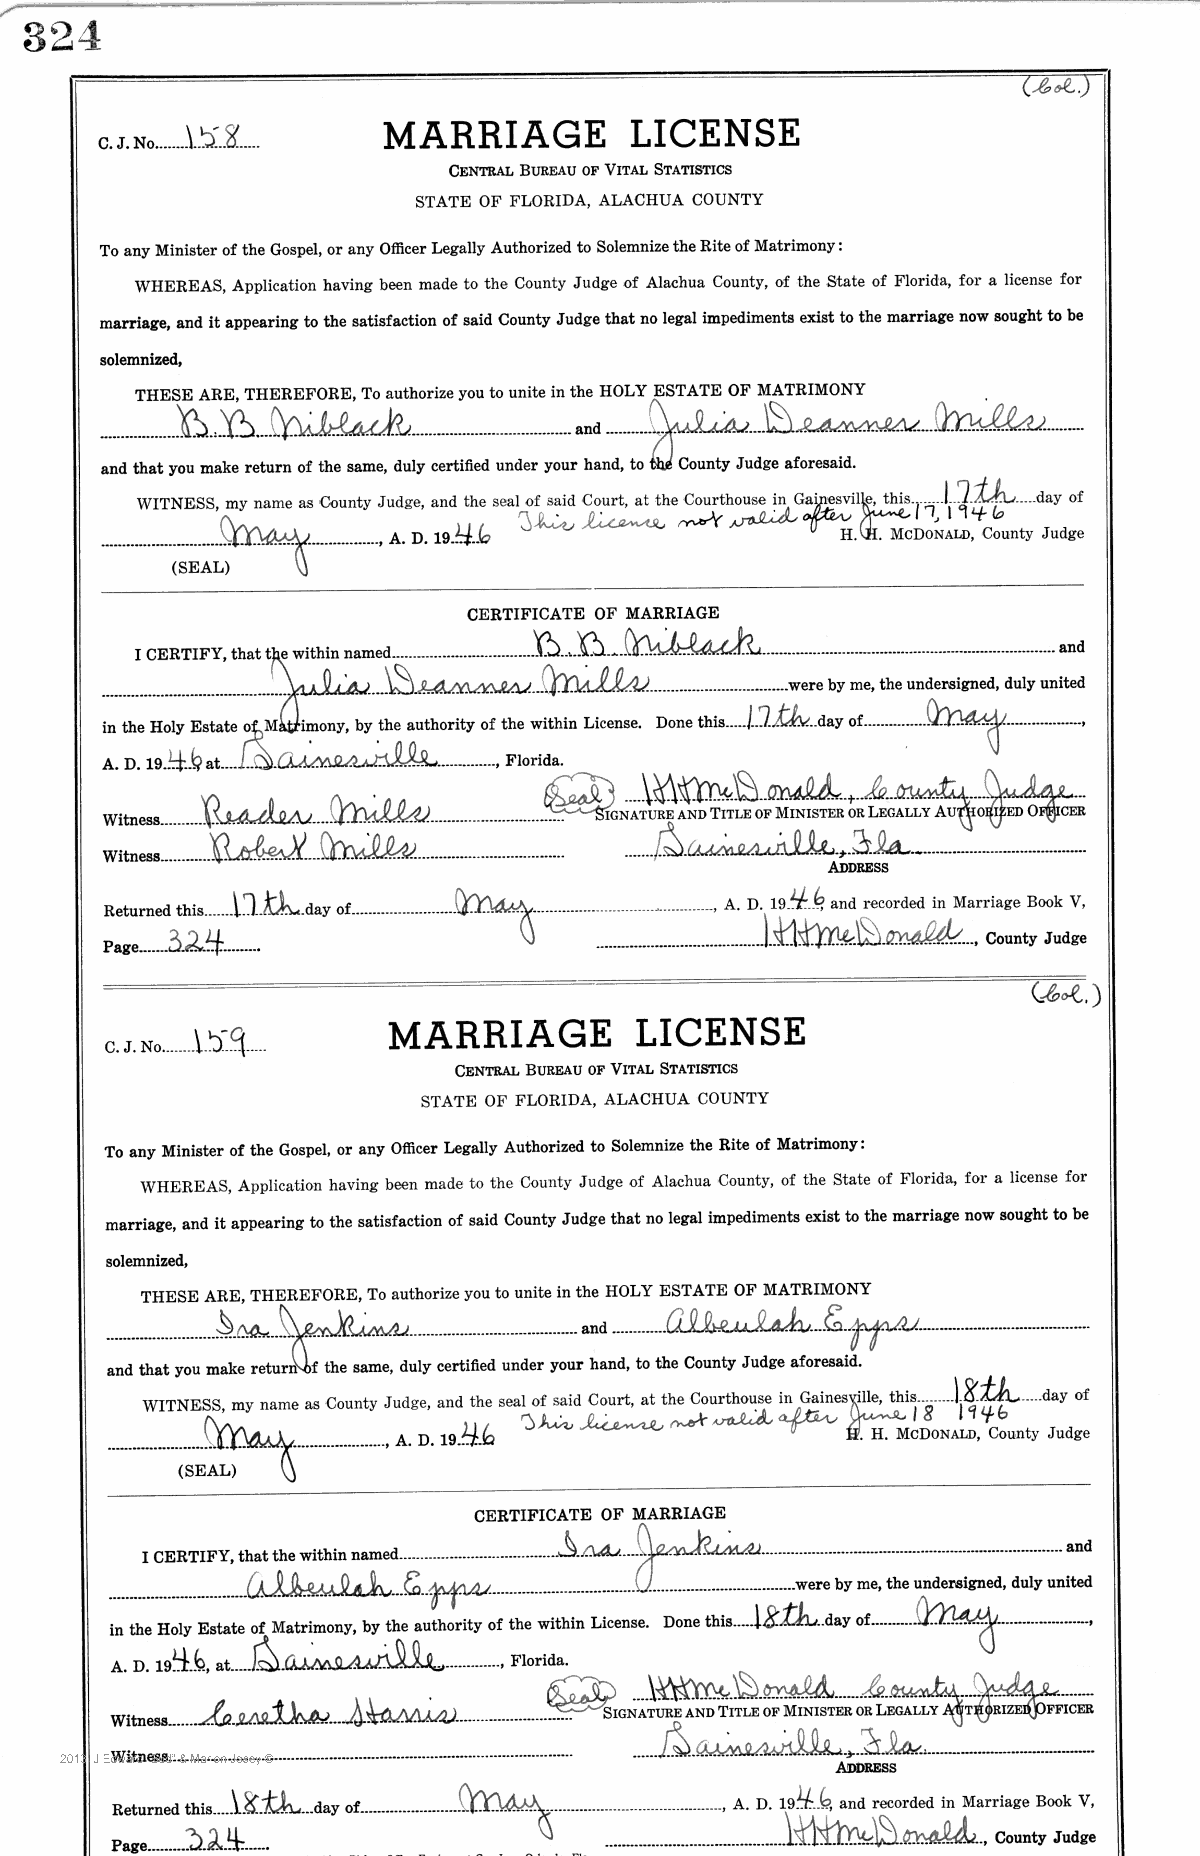 324
(Col.)
C. J. No. 158
MARRIAGE LICENSE
CENTRAL BUREAU OF VITAL STATISTICS
STATE OF FLORIDA, ALACHUA COUNTY
To any Minister of the Gospel, or any Officer Legally Authorized to Solemnize the Rite of Matrimony:
WHEREAS, Application having been made to the County Judge of Alachua County, of the State of Florida, for a license for
marriage, and it appearing to the satisfaction of said County Judge that no legal impediments exist to the marriage now sought to be
solemnized,
THESE ARE, THEREFORE, To authorize you to unite in the HOLY ESTATE OF MATRIMONY
B. B. Niblack and Julia Deanner Mills
and that you make return of the same, duly certified under your hand, to the County Judge aforesaid.
WITNESS, my name as County Judge, and the seal of said Court, at the Courthouse in Gainesville, this 17th day of
This license not valid after June 17, 1946
May, A. D. 1946 H. H. MCDONALD, County Judge
(SEAL)
CERTIFICATE OF MARRIAGE
I CERTIFY, that the within named B. B. Niblack and
Julia Deanner Mills were by me, the undersigned, duly united
in the Holy Estate of Matrimony, by the authority of the within License. Done this 17th day of May,
A. D. 1946, at Gainesville, Florida.
Seal HH McDonald, County Judge
Witness Reader Mills SIGNATURE AND TITLE OF MINISTER OR LEGALLY AUTHORIZED OFFICER
Witness Robert Mills Gainesville, Fla.
ADDRESS
Returned this 17th day of May, A. D. 1946, and recorded in Marriage Book V,
Page 324 HH McDonald, County Judge
(Col.)
C. J. No. 159
MARRIAGE LICENSE
CENTRAL BUREAU OF VITAL STATISTICS
STATE OF FLORIDA, ALACHUA COUNTY
To any Minister of the Gospel, or any Officer Legally Authorized to Solemnize the Rite of Matrimony:
WHEREAS, Application having been made to the County Judge of Alachua County, of the State of Florida, for a license for
marriage, and it appearing to the satisfaction of said County Judge that no legal impediments exist to the marriage now sought to be
solemnized,
THESE ARE, THEREFORE, To authorize you to unite in the HOLY ESTATE OF MATRIMONY
Ira Jenkins and Albeulah Epps
and that you make return of the same, duly certified under your hand, to the County Judge aforesaid.
WITNESS, my name as County Judge, and the seal of said Court, at the Courthouse in Gainesville, this 18th day of
This license not valid after June 18 1946
May, A. D. 1946 H. H. MCDONALD, County Judge
(SEAL)
CERTIFICATE OF MARRIAGE
I CERTIFY, that the within named Ira Jenkins and
Albeulah Epps were by me, the undersigned, duly united
in the Holy Estate of Matrimony, by the authority of the within License. Done this 18th day of May,
A. D. 1946, at Gainesville, Florida.
Seal HH McDonald County Judge
Witness Ceretha Harris SIGNATURE AND TITLE OF MINISTER OR LEGALLY AUTHORIZED OFFICER
Witness Gainesville, Fla.
ADDRESS
Returned this 18th day of May, A. D. 1946, and recorded in Marriage Book V,
Page 324 HH McDonald, County Judge